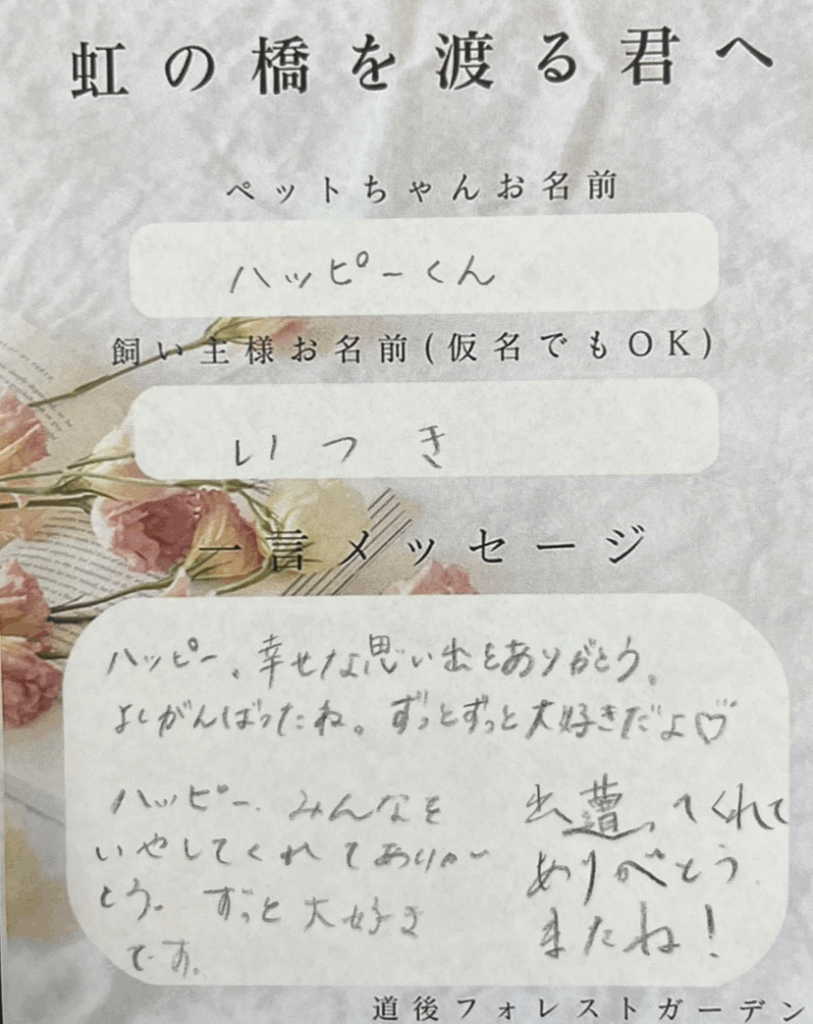 虹の橋を渡る君へ
ペットちゃんお名前
ハッピーくん
飼い主様お名前(仮名でもOK)
いつき
一言メッセージ
ハッピー、幸せな思い出をありがとう。
よくがんばったね。ずっとずっと大好きだよ♡
ハッピー、みんなを
いやしてくれてありが
とう。ずっと大好き
です。
出遭ってくれて
ありがとう
またね!
道後フォレストガーデン